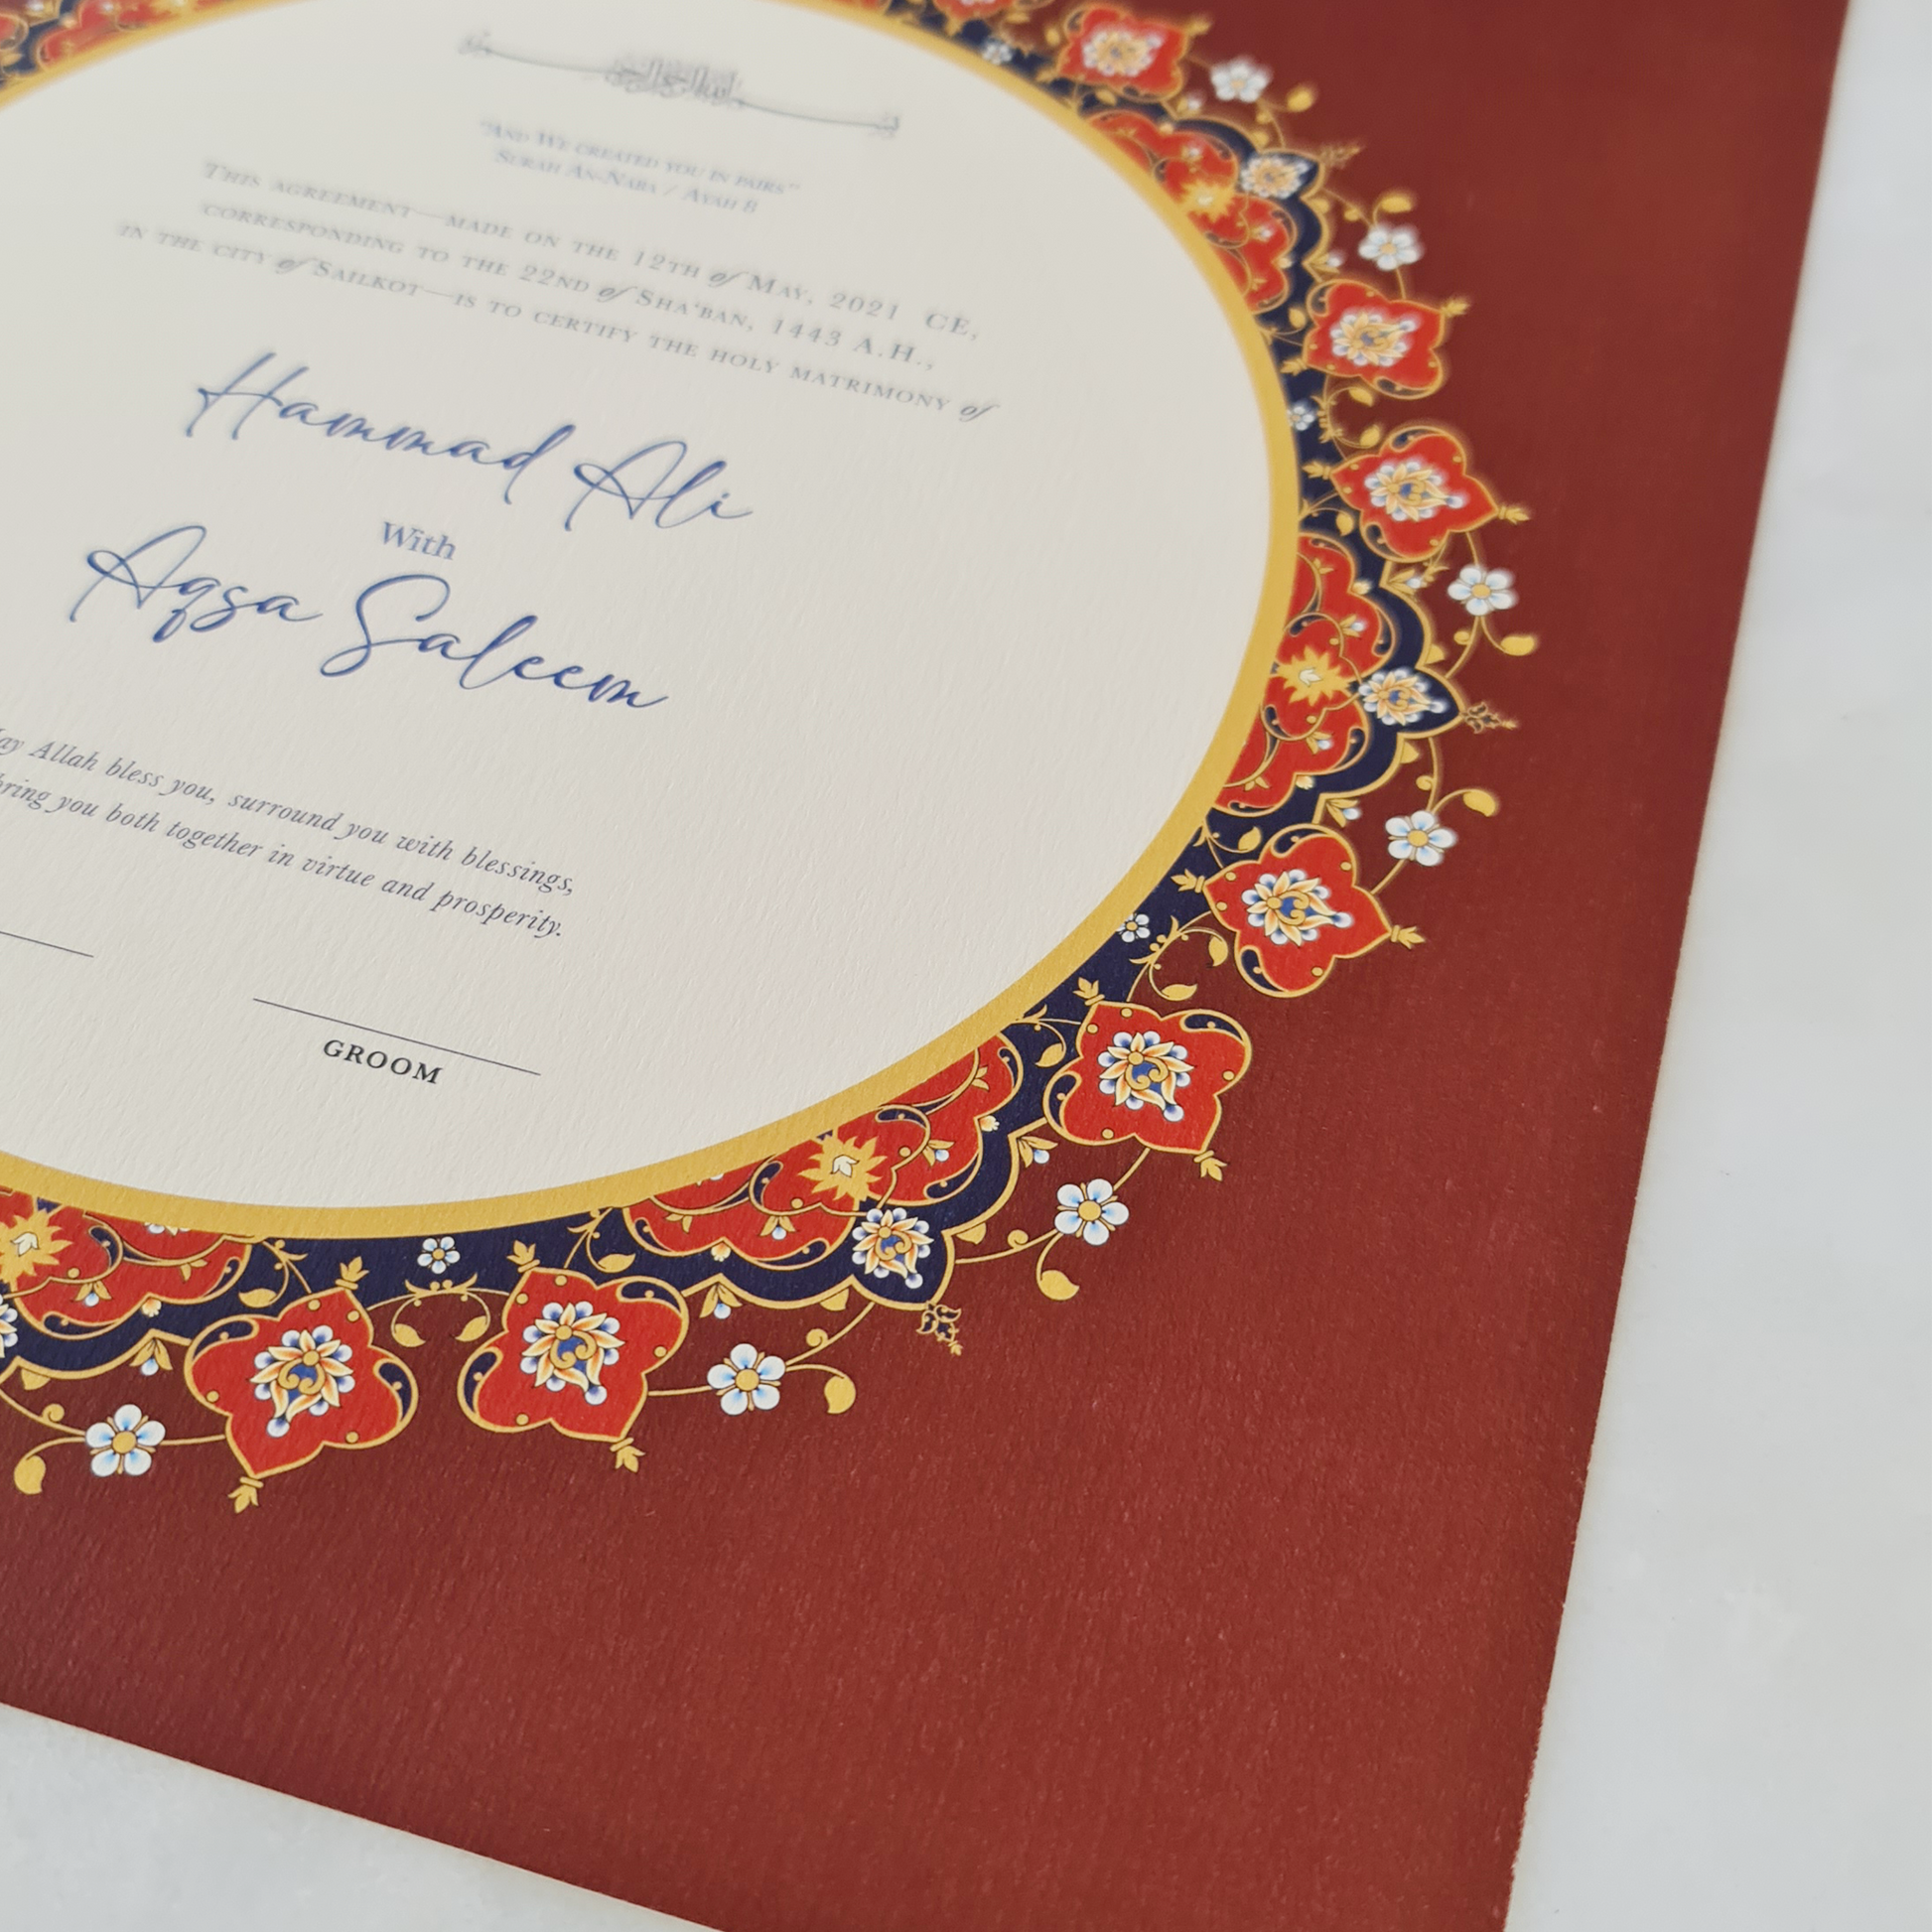 بسم الله الرحمن الرحيم
"And We created you in pairs"
Surah An-Naba / Ayah 8
This agreement—made on the 12th of May, 2021 CE,
corresponding to the 22nd of Sha'ban, 1443 A.H.,
in the city of Sailkot—is to certify the holy matrimony of
Hammad Ali
With
Aqsa Saleem
ay Allah bless you, surround you with blessings,
bring you both together in virtue and prosperity.
GROOM